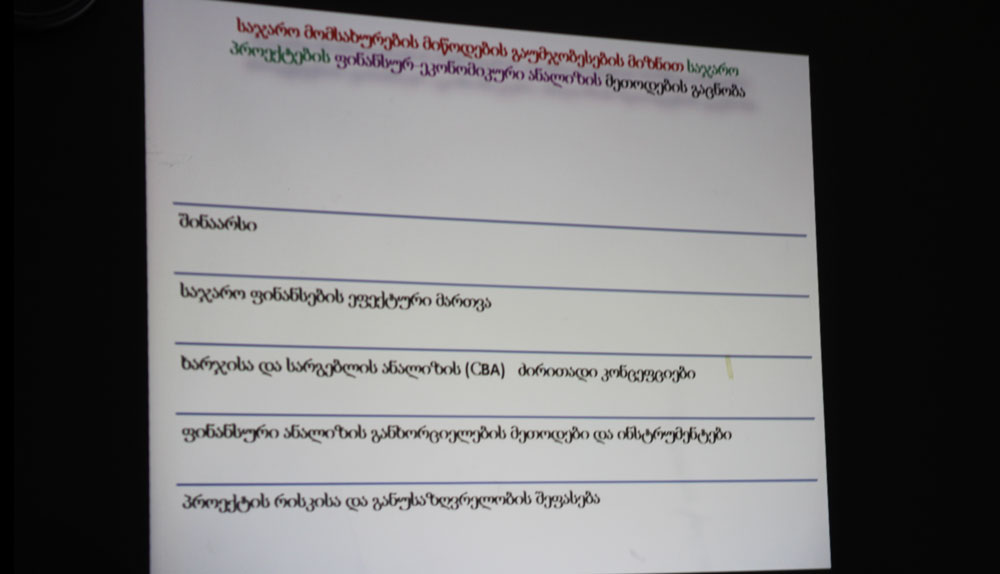 საჯარო მომსახურების მიწოდების გაუმჯობესების მიზნით საჯარო
პროექტების ფინანსურ-ეკონომიკური ანალიზის მეთოდების გაცნობა
შინაარსი
საჯარო ფინანსების ეფექტური მართვა
ხარჯისა და სარგებლის ანალიზის (CBA) ძირითადი კონცეფციები
ფინანსური ანალიზის განხორციელების მეთოდები და ინსტრუმენტები
პროექტის რისკისა და განუსაზღვრელობის შეფასება